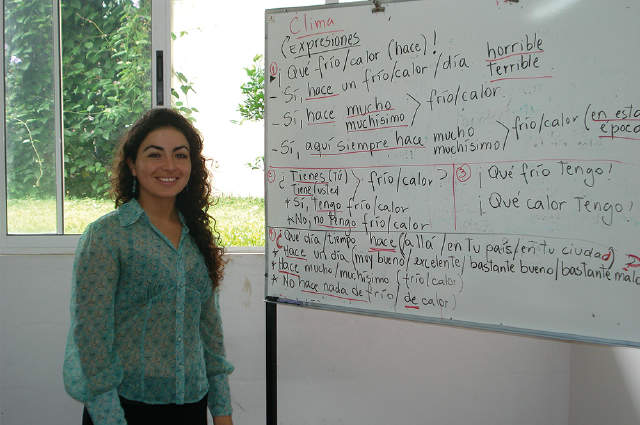 Clima
(Expresiones
① ¡Qué frío/calor (hace)!
- Sí, hace un frío/calor/día horrible terrible
- Sí, hace mucho muchísimo > frío/calor.
- Sí, aquí siempre hace mucho muchísimo > frío/calor (en esta época
② ¿Tienes (tú) Tiene (usted > frío/calor?
+ Sí, tengo frío/calor
* No, no tengo frío/calor
③ ¡Qué frío tengo!
¡Qué calor tengo!
④ ¿Qué día/tiempo hace (allá/en tu país/en tu ciudad)
* Hace un día (muy bueno/excelente/bastante bueno/bastante malo
* Hace mucho/muchísimo (frío/calor)
* No hace nada de frío/de calor)